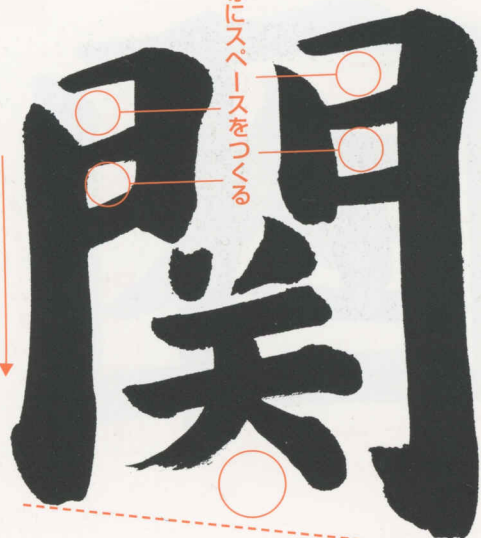 にスペースをつくる
関